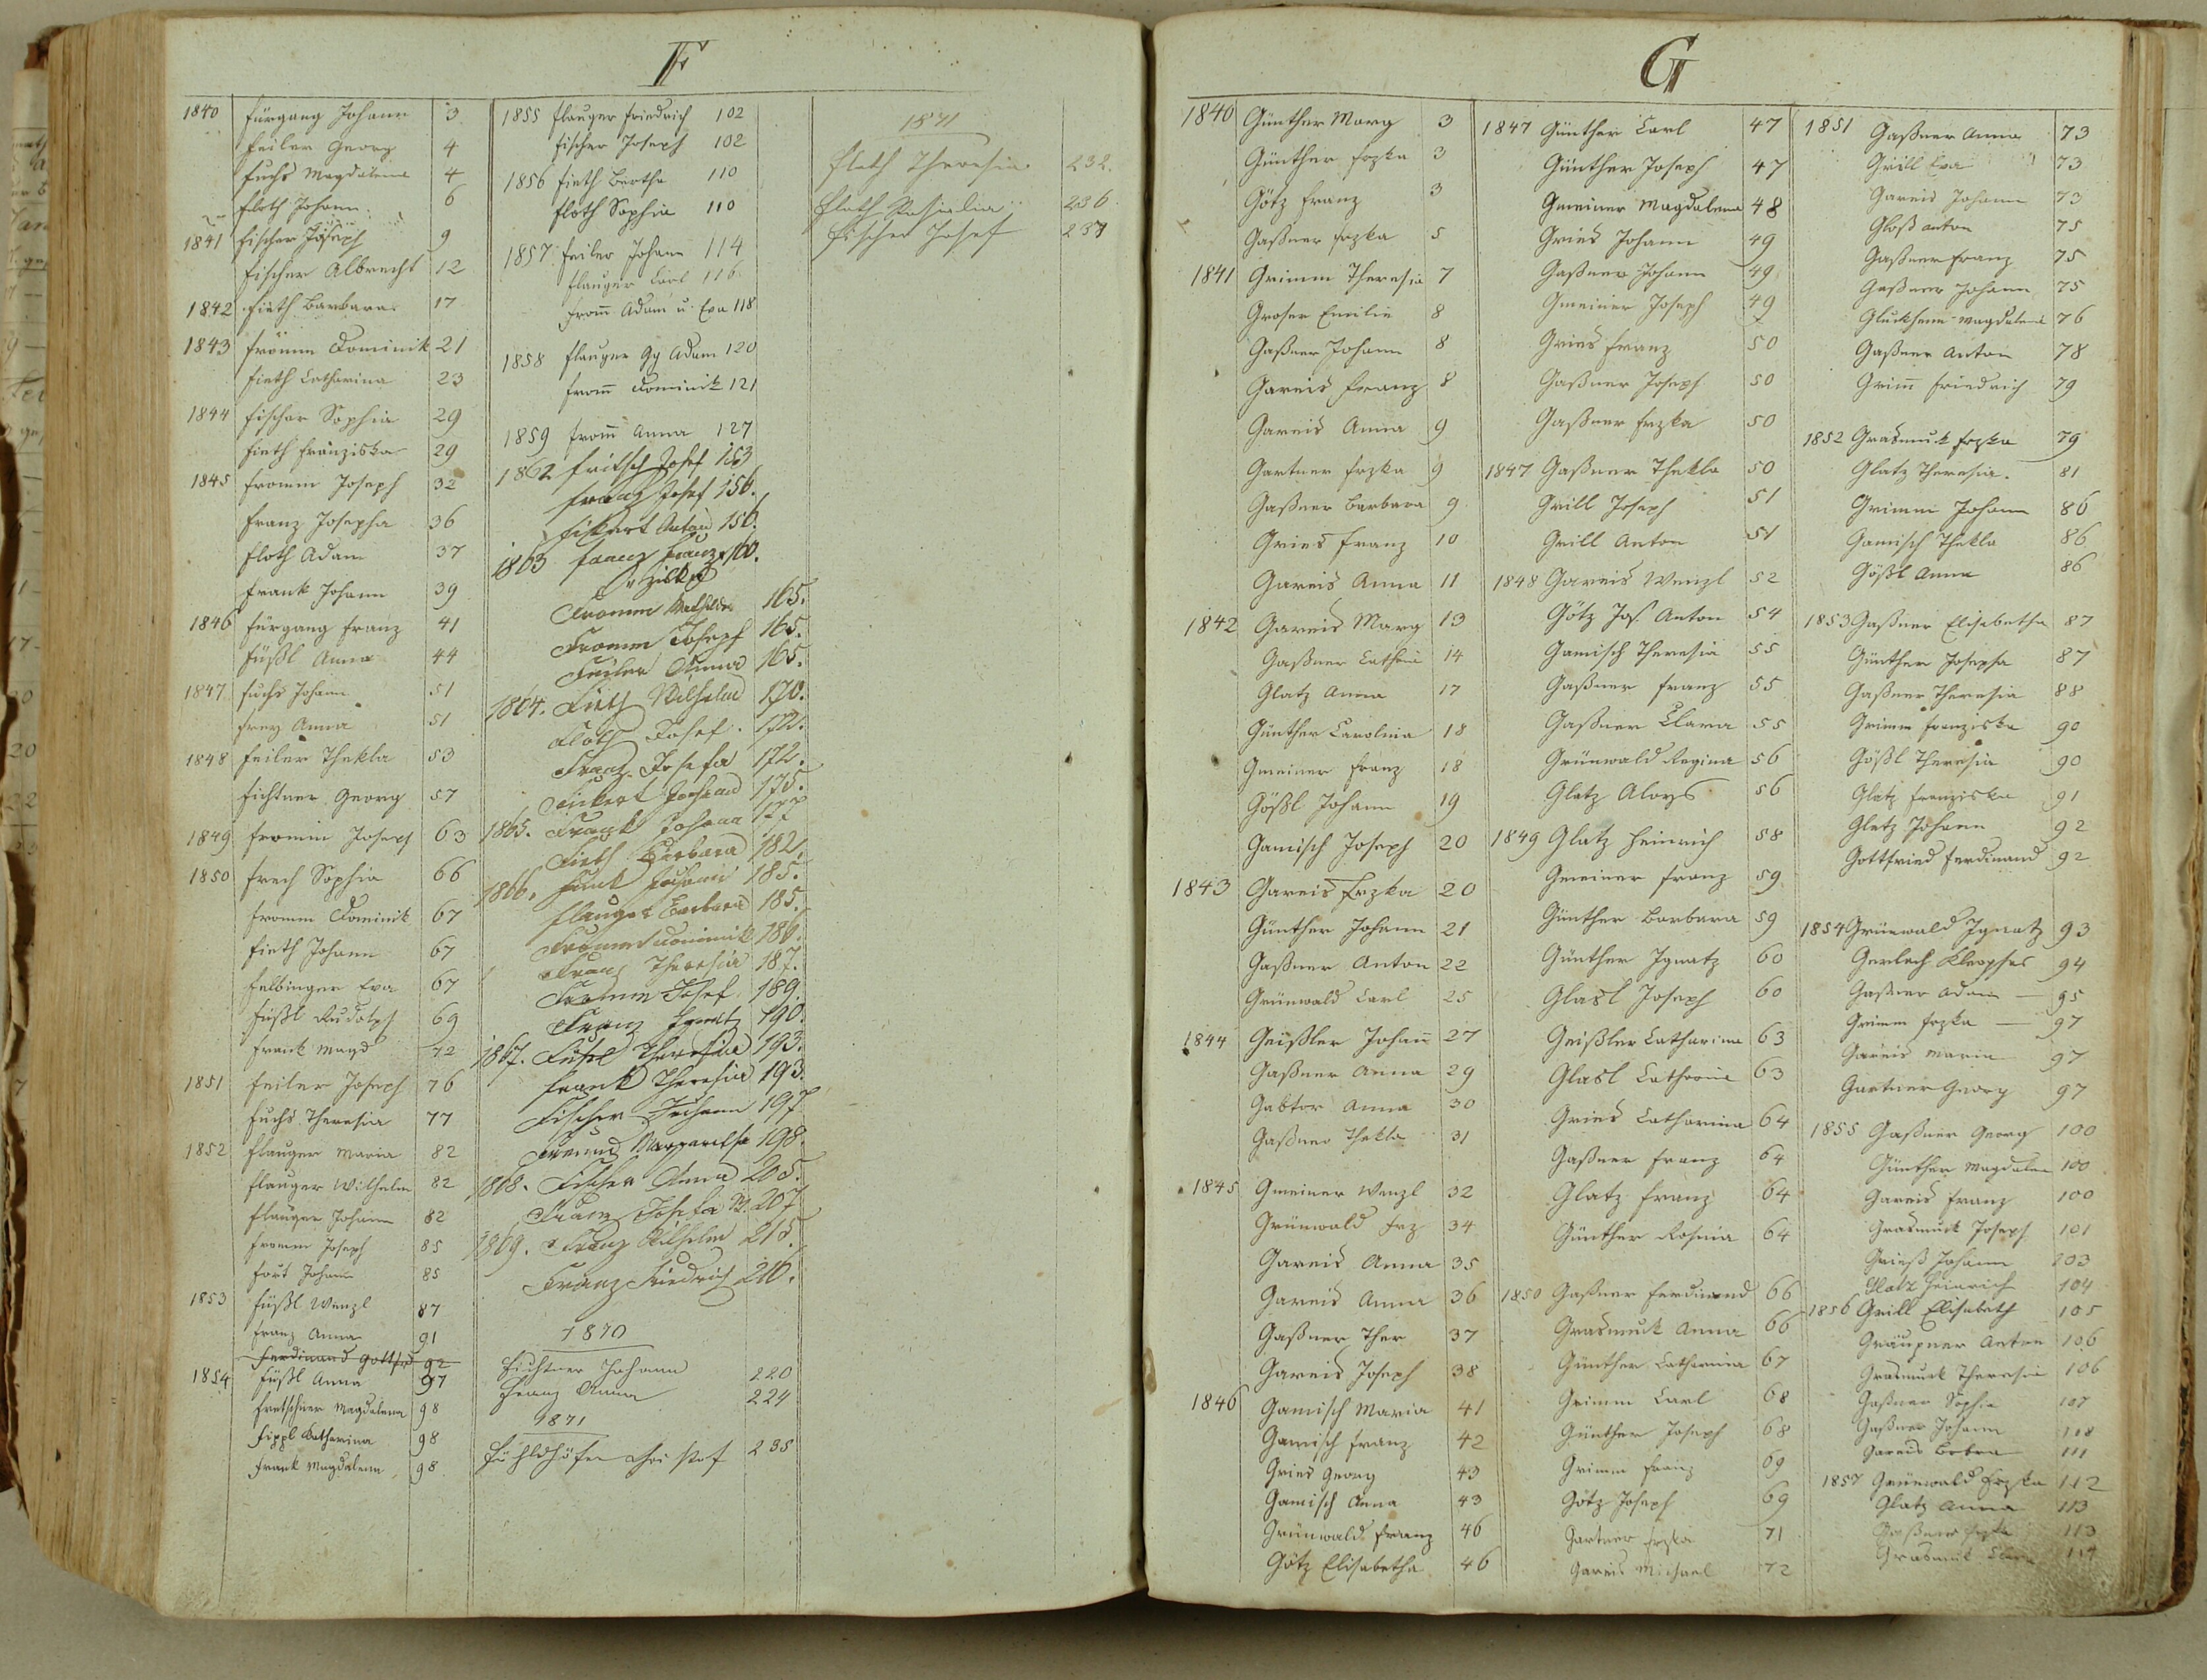 F
1840 Fürgang Johann 3
Feiler Georg 4
Fuchs Magdalena 4
Floth Johann 6
1841 Fischer Joseph 9
Fischer Albrecht 12
1842 Fieth Barbara 17
1843 Fromm Dominik 21
Fieth Catharina 23
1844 Fischer Sophia 29
Fieth Franziska 29
1845 Fromm Joseph 32
Franz Josepha 36
Floth Adam 37
Frank Johann 39
1846 Fürgang Franz 41
Füßl Anna 44
1847 Fuchs Johann 51
Frey Anna 51
1848 Feiler Thekla 53
Fichtner Georg 57
1849 Fromm Joseph 63
1850 Frech Sophia 66
Fromm Dominik 67
Fieth Johann 67
Felbinger Eva 67
Füßl Rudolph 69
Frank Magd 72
1851 Feiler Joseph 76
Fuchs Theresia 77
1852 Flauger Maria 82
Flauger Wilhelm 82
Flauger Johann 82
Fromm Joseph 85
Fort Johann 85
1853 Füßl Wenzl 87
Franz Anna 91
Ferdinand Gottfrd 92
1854 Füßl Anna 97
Fretschner Magdalena 98
Fippl Katharina 98
Frank Magdalena 98
1855 Flauger Friedrich 102
Fischer Joseph 102
1856 Fieth Bertha 110
Floth Sophia 110
1857 Feiler Johann 114
Flauger Carl 116
From̄ Adam u. Eva 118
1858 Flauger Gg Adam 120
From̄ Dominik 121
1859 From̄ Anna 127
1862 Fritsch Josef 153
Franz Josef 156.
Fikert Anton 156.
1863 Franz Franz 160.
Fromm Mathilde 165.
Fromm Joseph 165.
Feiler Anna 165.
1864. Fieth Wilhelm 170.
Floth Josef 172.
Franz Josefa 172.
Fickert Johann 175.
1865. Frank Johann 177
Fieth Barbara 182.
1866. Funk Johann 185.
Flauger Barbara 185.
Fromm Dominik 186.
Franz Theresia 187.
Fromm Josef 189.
Franz Ignatz 190.
1867. Füßel Theresia 193.
Frank Theresia 193.
Fischer Johann 197
Freund Margaretha 198.
1868. Fischer Anna 205.
Franz Josefa M. 207
1869. Franz Wilhelm 215.
Franz Friedrich 216.
1870
Fichtner Johann 220
Franz Anna 224
1871
235
1871
Floth Theresia 232.
Floth Rosalia 236.
Fischer Josef 237
G
1840 Günther Marg 3
Günther Frzka 3
Götz Franz 3
Gaßner Frzka 5
1841 Grimm Theresia 7
Groser Emilie 8
Gaßner Johann 8
Gareis Franz 8
Gareis Anna 9
Gartner Frzka 9
Gaßner Barbara 9
Gries Franz 10
Gareis Anna 11
1842 Gareis Marg 13
Gaßner Cathrin 14
Glatz Anna 17
Günther Carolina 18
Gmeiner Franz 18
Gößl Johann 19
Gamisch Joseph 20
1843 Gareis Frzka 20
Günther Johann 21
Gaßner Anton 22
Grünwald Carl 25
1844 Geißler Johan̄ 27
Gaßner Anna 29
Gabtor Anna 30
Gaßner Thekla 31
1845 Gmeiner Wenzl 32
Grünwald Frz 34
Gareis Anna 35
Gareis Anna 36
Gaßner Ther 37
Gareis Joseph 38
1846 Gamisch Maria 41
Gamisch Franz 42
Gries Georg 43
Gamisch Anna 43
Grünwald Franz 46
Götz Elisabetha 46
1847 Günther Carl 47
Günther Joseph 47
Gmeiner Magdalena 48
Gries Johann 49
Gaßner Johann 49
Gmeiner Joseph 49
Gries Franz 50
Gaßner Joseph 50
Gaßner Frzka 50
1847 Gaßner Thekla 50
Grill Joseph 51
Grill Anton 51
1848 Gareis Wenzl 52
Götz Jos. Anton 54
Gamisch Theresia 55
Gaßner Franz 55
Gaßner Clara 55
Grünwald Regina 56
Glatz Aloys 56
1849 Glatz Heinrich 58
Gmeiner Franz 59
Günther Barbara 59
Günther Ignatz 60
Glasl Joseph 60
Geißler Catharina 63
Glasl Catharina 63
Gries Catharina 64
Gaßner Franz 64
Glatz Franz 64
Günther Rosina 64
1850 Gaßner Ferdinand 66
Grasmuk Anna 66
Günther Catharina 67
Grimm Carl 68
Günther Joseph 68
Grimm Franz 69
Götz Joseph 69
Gartner Frzka 71
Gareis Michael 72
1851 Gaßner Anna 73
Grill Eva 73
Gareis Johann 73
Gloß Anton 75
Gaßner Franz 75
Gaßner Johann 75
Magdalena 76
Gaßner Anton 78
Grim̄ Friedrich 79
1852 Grasmuk Frzka 79
Glatz Theresia 81
Grimm Johann 86
Gamisch Thekla 86
Gößl Anna 86
1853 Gaßner Elisabetha 87
Günther Josepha 87
Gaßner Theresia 88
Grimm Franziska 90
Gößl Theresia 90
Glatz Franziska 91
Glatz Johann 92
Gottfried Ferdinand 92
1854 Grünwald Ignatz 93
Gerlach Kleophas 94
Gaßner Adam — 95
Grimm Frzka — 97
Gareis Maria 97
Gartner Georg 97
1855 Gaßner Georg 100
Günther Magdalen 100
Gareis Franz 100
Grasmuck Joseph 101
Grieß Johann 103
Glatz Heinrich 104
1856 Grill Elisabeth 105
Gräupner Anton 106
Grasmuck Theresia 106
Gaßner Sophie 107
Gaßner Johann 108
Gareis Brbra 111
1857 Grünwald Frzka 112
Glatz Anna 113
Gaßner Frzka 113
Grasmuk Clara 114